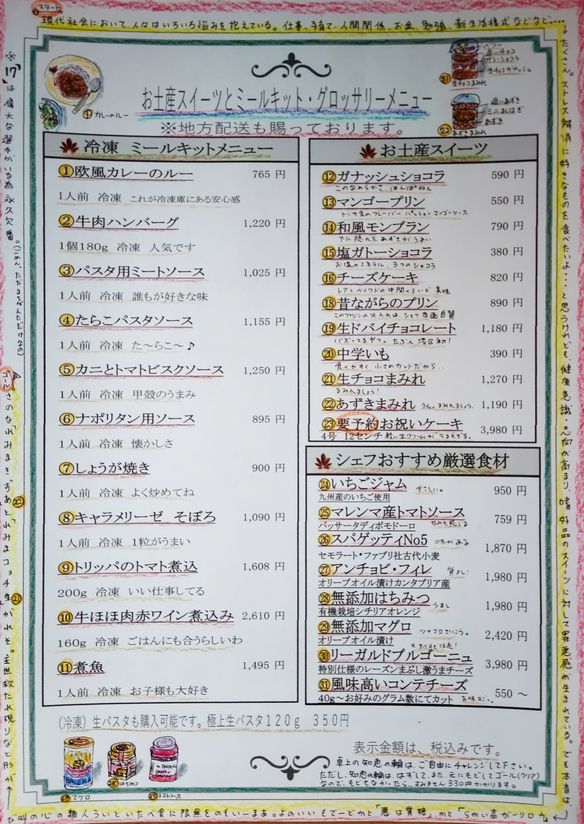 スタート
現代社会において人々はいろいろ悩みを抱えている。仕事、子育て、人間関係、お金、勉強、新生活様式などなど
①カレーのルー
お土産スイーツとミールキット・グロッサリーメニュー
※地方配送も賜っております。
冷凍 ミールキットメニュー
①欧風カレーのルー 765 円
1人前 冷凍 これが冷凍庫にある安心感
②牛肉ハンバーグ 1,220 円
1個180g 冷凍 人気です
③パスタ用ミートソース 1,025 円
1人前 冷凍 誰もが好きな味
④たらこパスタソース 1,155 円
1人前 冷凍 た〜らこ〜♪
⑤カニとトマトビスクソース 1,250 円
1人前 冷凍 甲殻のうまみ
⑥ナポリタン用ソース 895 円
1人前 冷凍 懐かしさ
⑦しょうが焼き 900 円
1人前 冷凍 よく炒めてね
⑧キャラメリーゼ そぼろ 1,090 円
1人前 冷凍 1粒がうまい
⑨トリッパのトマト煮込 1,608 円
200g 冷凍 いい仕事してる
⑩牛ほほ肉赤ワイン煮込み 2,610 円
160g 冷凍 ごはんにも合うらしいわ
⑪煮魚 1,495 円
1人前 冷凍 お子様も大好き
お土産スイーツ
⑫ガナッシュショコラ 590 円
⑬マンゴープリン 550 円
⑭和風モンブラン 790 円
⑮塩ガトーショコラ 380 円
⑯チーズケーキ 820 円
⑱昔ながらのプリン 890 円
⑲生ドバイチョコレート 1,180 円
⑳中学いも 390 円
㉑生チョコまみれ 1,270 円
㉒あずきまみれ 1,190 円
㉓要予約お祝いケーキ 3,980 円
4号 12センチ
シェフおすすめ厳選食材
㉔いちごジャム やさしい。 950 円
九州産のいちご使用
㉕マレンマ産トマトソース 759 円
パッサータディポモドーロ
㉖スパゲッティNo5 1,870 円
セモラート・ファブリ社古代小麦
㉗アンチョビ・フィレ 1,980 円
オリーブオイル漬けカンタブリア産
㉘無添加はちみつ うまし 1,980 円
有機栽培シチリアオレンジ
㉙無添加マグロ 2,420 円
オリーブオイル漬け
㉚リーガルドブルゴーニュ 3,980 円
特別仕様のレーズンまぶし激うまチーズ
㉛風味高いコンテチーズ 550 〜
40g〜お好みのグラム数にてカット
(冷凍) 生パスタも購入可能です。極上生パスタ120g 350円
表示金額は、税込みです。
卓上の知恵の輪は、ご自由にチャレンジして下さい。
ただし、知恵の輪は、はずして、また元にもどしてゴール(クリア)
なので、もどせなかったら、お代金330円かかります。